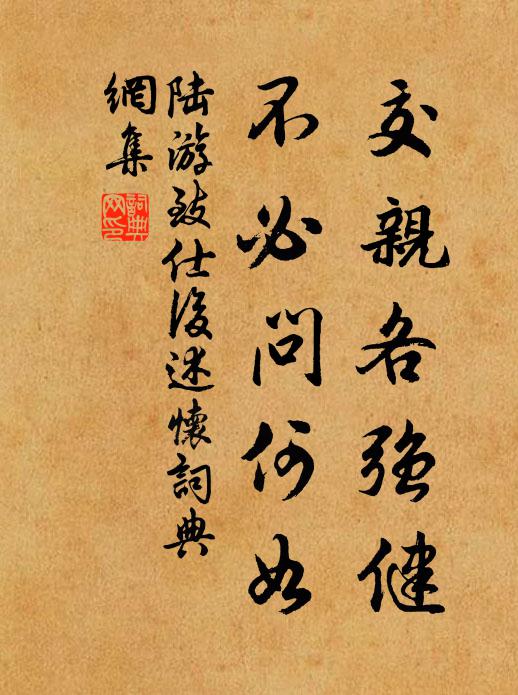 交親各強健
不必問何如
陸游致仕後述懷詞典
網集
詞典
网印